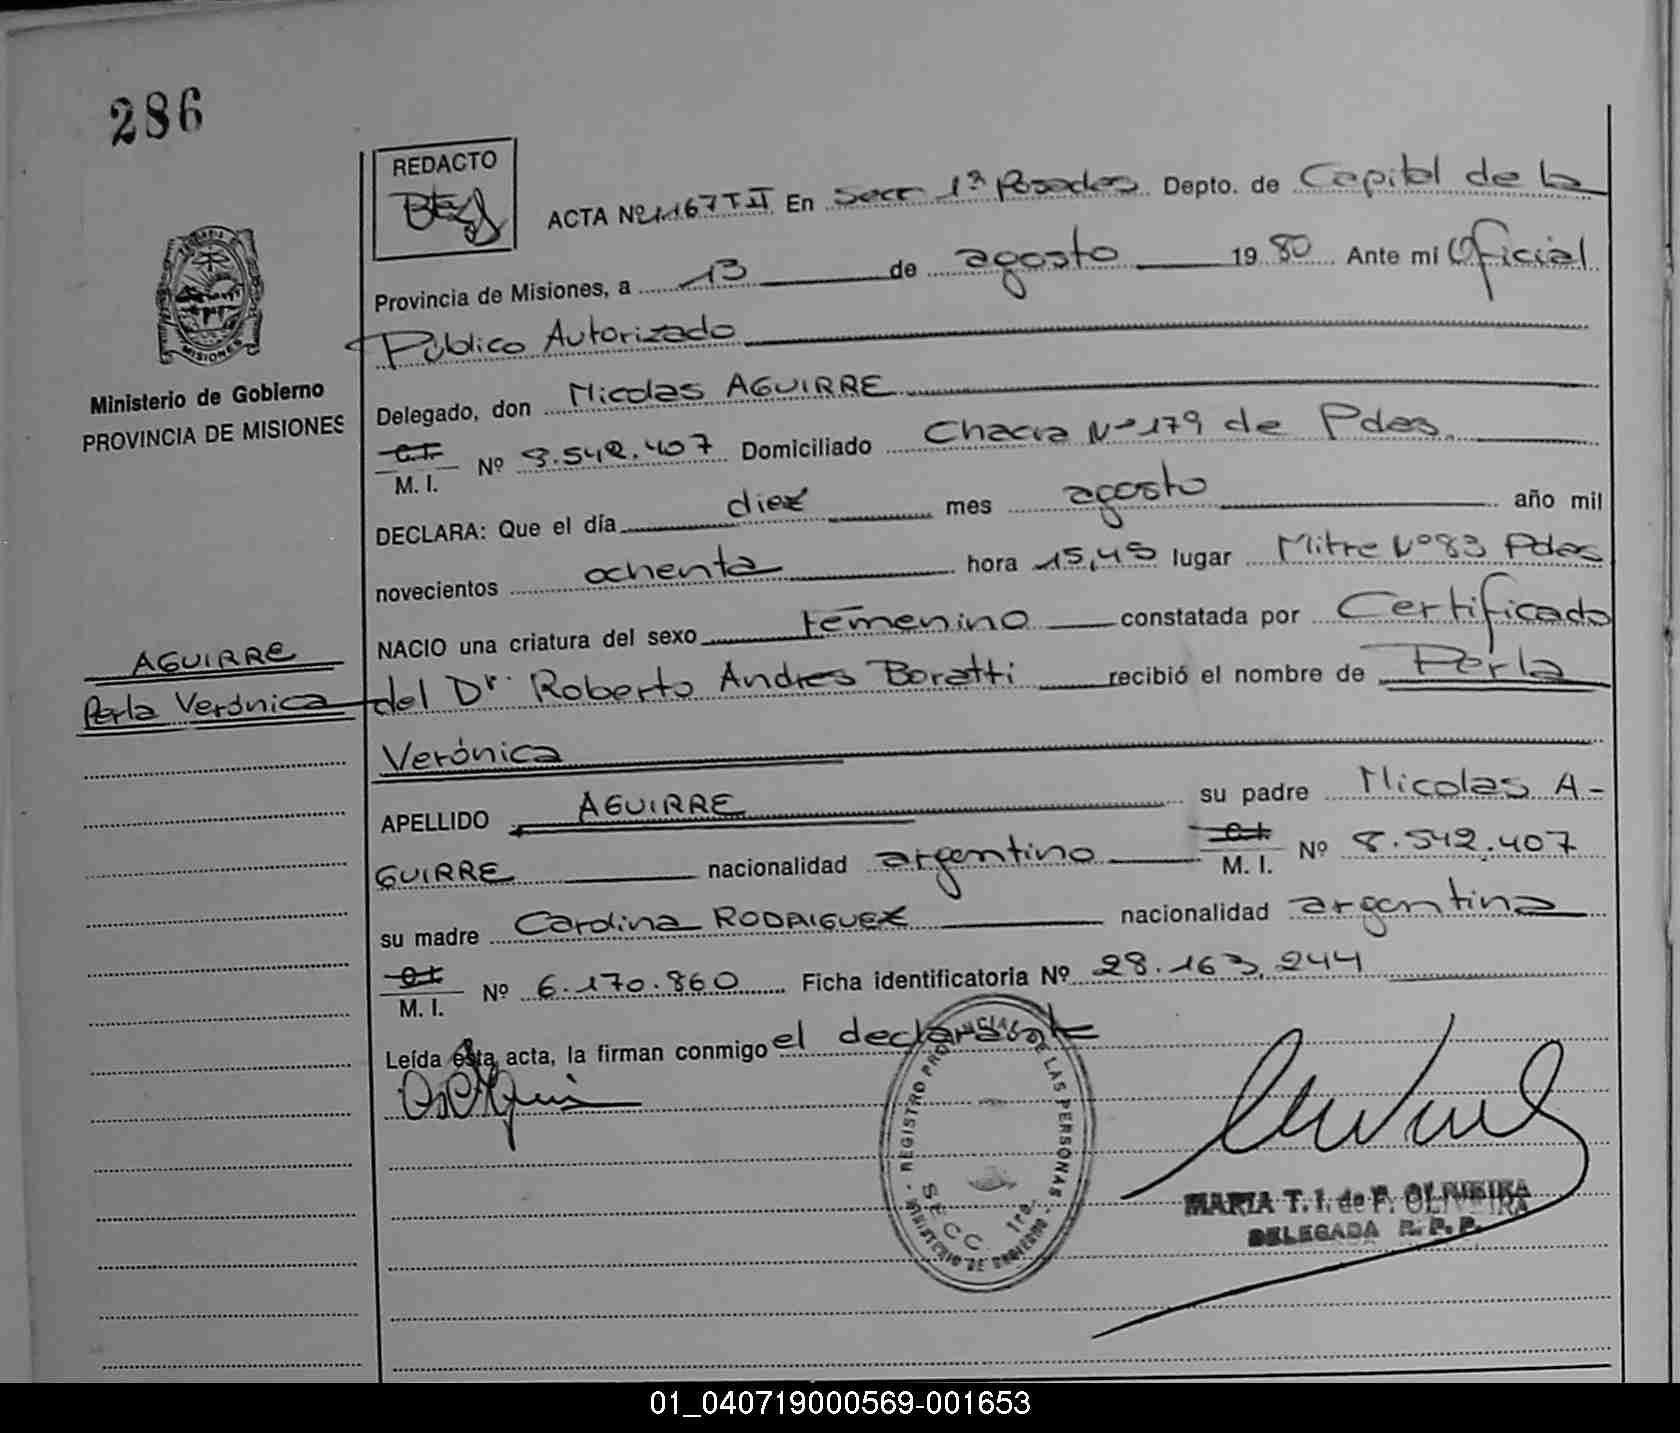 286
REDACTO
ACTA Nº 1167 T II En Secc 1ª Posadas Depto. de Capital de la
Provincia de Misiones, a 13 de agosto 1980 Ante mi Oficial
Público Autorizado
PROVINCIA DE
MISIONES
Ministerio de Gobierno
PROVINCIA DE MISIONES
Delegado, don Nicolas AGUIRRE
C.I.
M. I. Nº 8.542.407 Domiciliado Chacra Nº 179 de Pdas.
DECLARA: Que el día diez mes agosto año mil
novecientos ochenta hora 15,45 lugar Mitre Nº 83 Pdas
NACIO una criatura del sexo femenino constatada por Certificado
AGUIRRE
Perla Verónica
del Dr. Roberto Andres Boratti recibió el nombre de Perla
Verónica
APELLIDO AGUIRRE su padre Nicolas A-
GUIRRE nacionalidad argentino C.I. M. I. Nº 8.542.407
su madre Carolina RODRIGUEZ nacionalidad argentina
C.I.
M. I. Nº 6.170.860 Ficha identificatoria Nº 28.163.244
Leída esta acta, la firman conmigo el declarante
REGISTRO PROVINCIAL DE LAS PERSONAS
SECC 1ra.
MINISTERIO DE GOBIERNO
MARIA T. I. de F. OLIVEIRA
DELEGADA R. P. P.
01_040719000569-001653